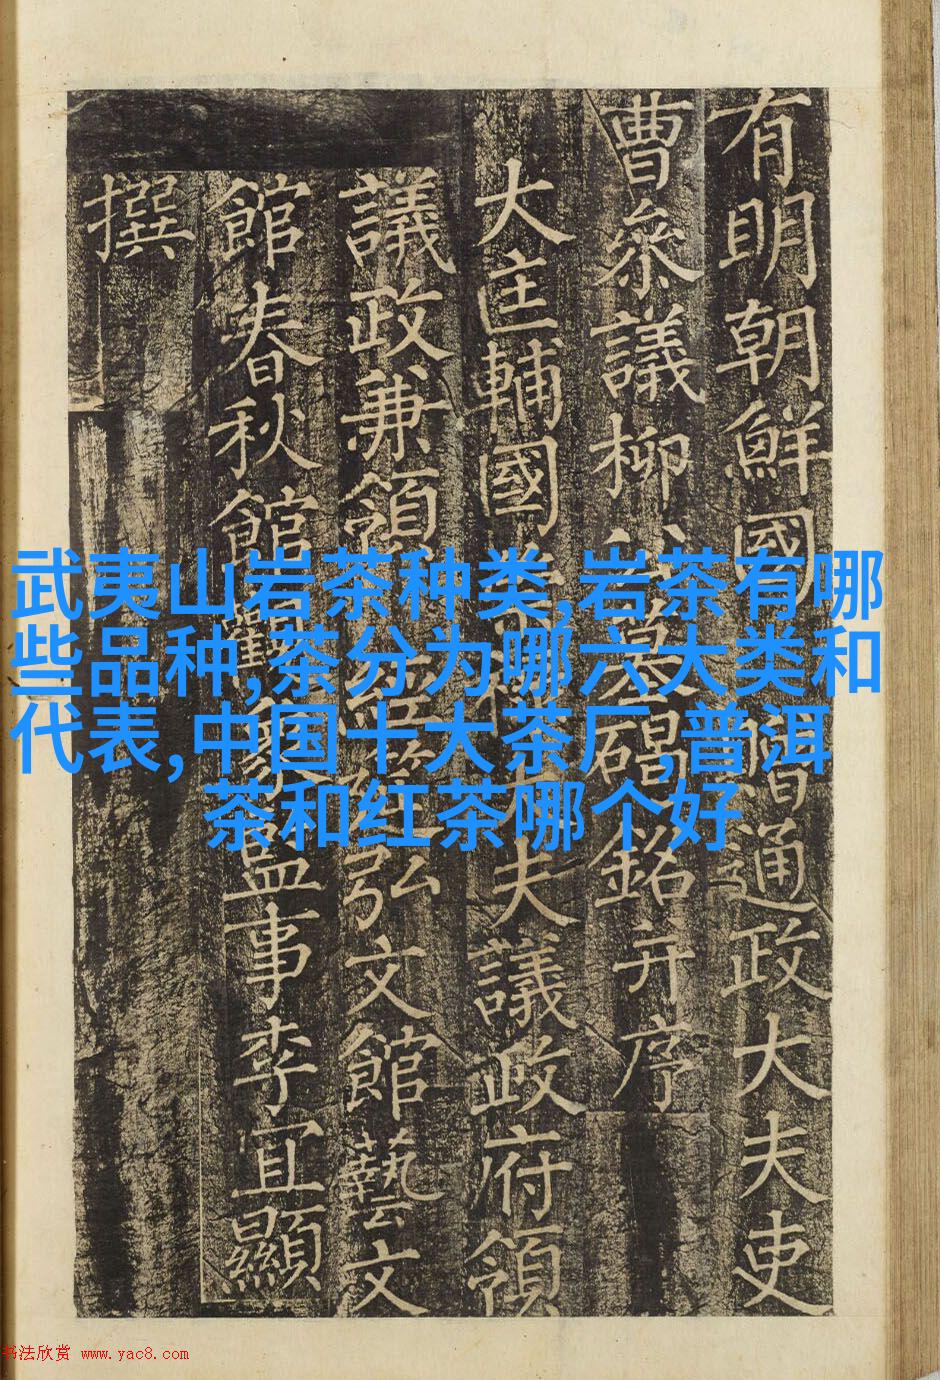 有明朝鮮國贈通政大夫吏
曹參議柳公墓碣銘并序
大匡輔國崇祿大夫議政府領
議政兼領經筵弘文館藝文
館春秋館觀象監事李宜顯
撰
武夷山岩茶种类,岩茶有哪
些品种,茶分为哪六大类和
代表,中国十大茶厂,普洱
茶和红茶哪个好
书法欣赏 www.yac8.com